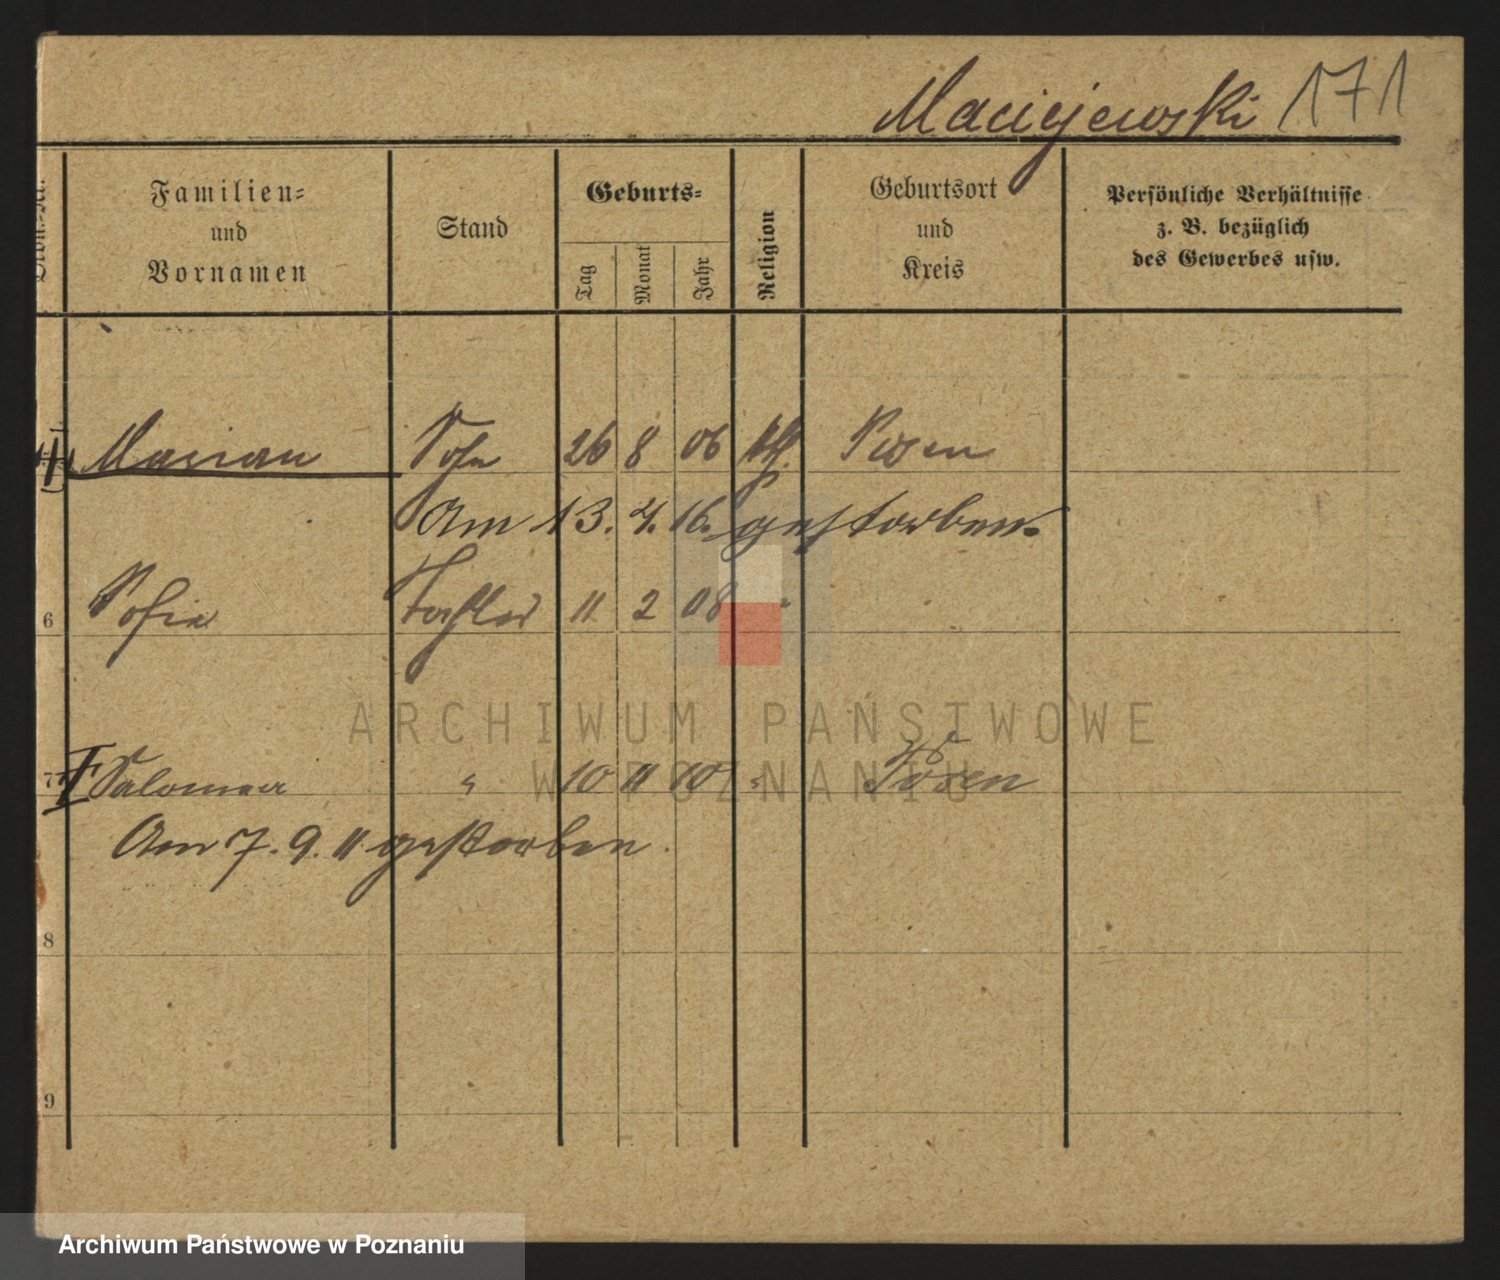 Maciejewski 171
Familien-
und
Vornamen
Stand
Geburts-
Tag
Monat
Jahr
Religion
Geburtsort
und
Kreis
Persönliche Verhältnisse
z. B. bezüglich
des Gewerbes usw.
Marian Sohn 26 8 06 kth. Posen
Am 13. 4. 16. gestorben.
6 Sofia Tochter 11 2 08 "
7 Salomea " 10 11 10 " Posen
Am 7. 9. 11. gestorben.
8
9
ARCHIWUM PAŃSTWOWE
W POZNANIU
Archiwum Państwowe w Poznaniu